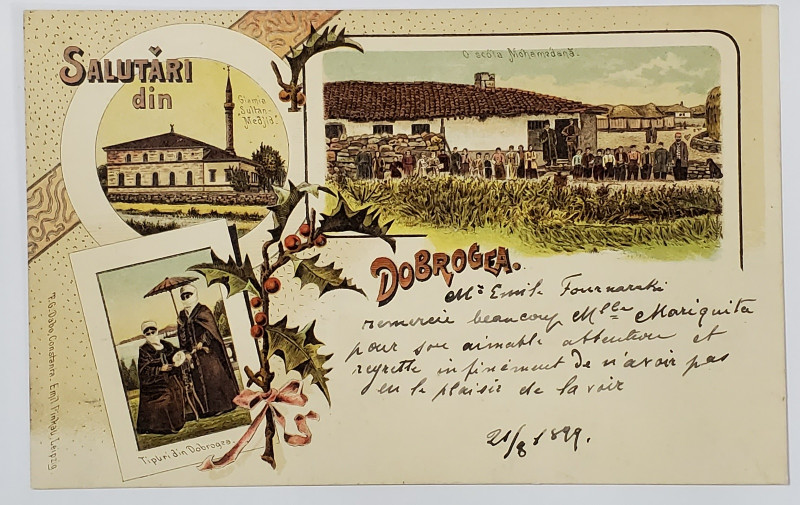 SALUTĂRI
din
Giamia
"Sultan-
Medjid".
O scóla Mohamedană.
DOBROGEA.
Mr Emile Fournaraki
remercie beaucoup Mlle Mariquita
pour son aimable attention et
regrette infinément de n'avoir pas
eu le plaisir de la voir
21/8 1899.
Tipuri din Dobrogea.
T. G. Dabo, Constanza. Emil Pinkau, Leipzig